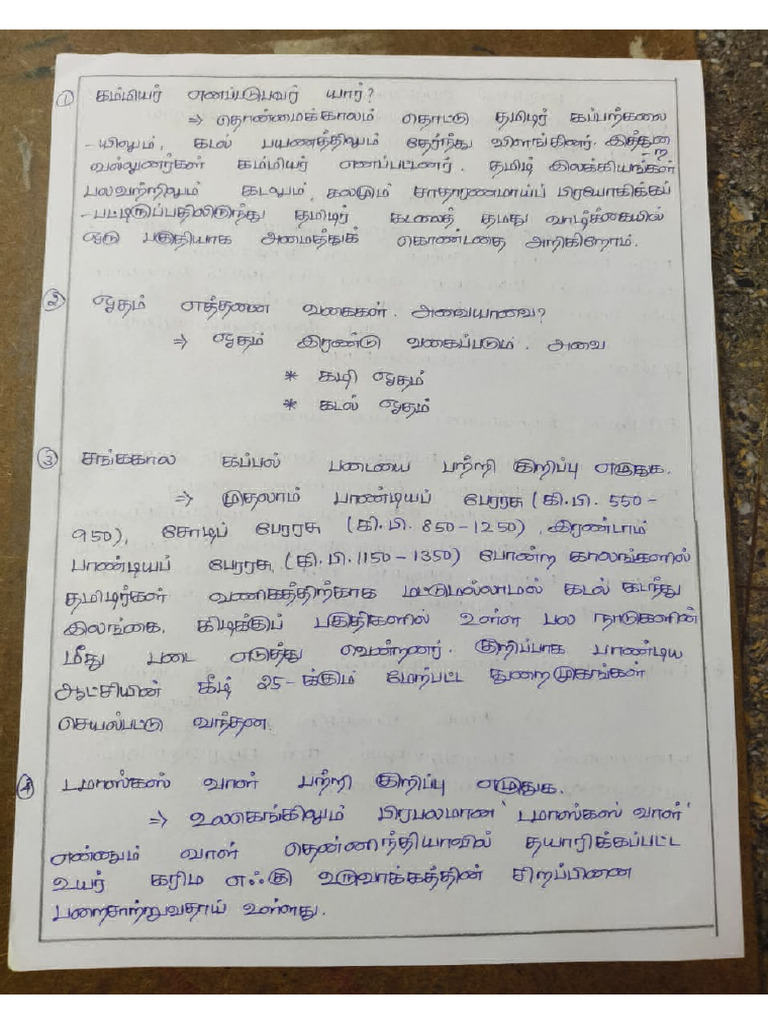 ① கம்மியர் எனப்படுபவர் யார்?
⇒ தொன்மைக்காலம் தொட்டு தமிழர் கப்பற்கலை
-யிலும், கடல் பயணத்திலும் தேர்ந்து விளங்கினர். இத்துறை
வல்லுனர்கள் கம்மியர் எனப்பட்டனர். தமிழ் இலக்கியங்கள்
பலவற்றிலும் கடலும், கலமும் சாதாரணமாய்ப் பிரயோகிக்கப்
-பட்டிருப்பதிலிருந்து தமிழர் கடலைத் தமது வாழ்க்கையில்
ஒரு பகுதியாக அமைத்துக் கொண்டதை அறிகிறோம்.
② ஓதம் எத்தனை வகைகள். அவையாவை?
⇒ ஓதம் இரண்டு வகைப்படும். அவை
* கழி ஓதம்
* கடல் ஓதம்
③ சங்ககால கப்பல் படையை பற்றி குறிப்பு எழுதுக.
⇒ முதலாம் பாண்டியப் பேரரசு (கி.பி. 550-
950), சோழப் பேரரசு (கி.பி. 850-1250), இரண்டாம்
பாண்டியப் பேரரசு, (கி.பி. 1150-1350) போன்ற காலங்களில்
தமிழர்கள் வணிகத்திற்காக மட்டுமல்லாமல் கடல் கடந்து
இலங்கை, கிழக்குப் பகுதிகளில் உள்ள பல நாடுகளின்
மீது படை எடுத்து வென்றனர். குறிப்பாக பாண்டிய
ஆட்சியின் கீழ் 25-க்கும் மேற்பட்ட துறைமுகங்கள்
செயல்பட்டு வந்தன.
④ டமாஸ்கஸ் வாள் பற்றி குறிப்பு எழுதுக.
⇒ உலகெங்கிலும் பிரபலமான 'டமாஸ்கஸ் வாள்'
என்னும் வாள் தென்னிந்தியாவில் தயாரிக்கப்பட்ட
உயர் கரிம எஃகு உருவாக்கத்தின் சிறப்பினை
பறைசாற்றுவதாய் உள்ளது.